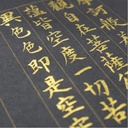 觀自在菩薩
蘊皆空度一切苦
異色色即是空空